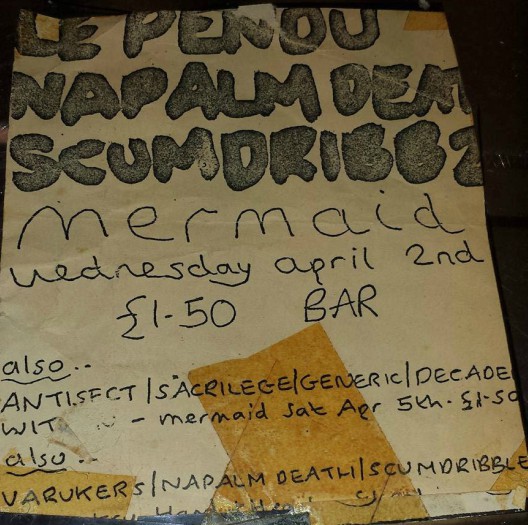 LE PENDU
NAPALM DEAT
SCUMDRIBBZ
mermaid
wednesday april 2nd
£1-50 BAR
also..
ANTISECT/SACRILEGE/GENERIC/DECADE
WIT - mermaid Sat Apr 5th. £1-50
also..
VARUKERS/NAPALM DEATH/SCUMDRIBBLE